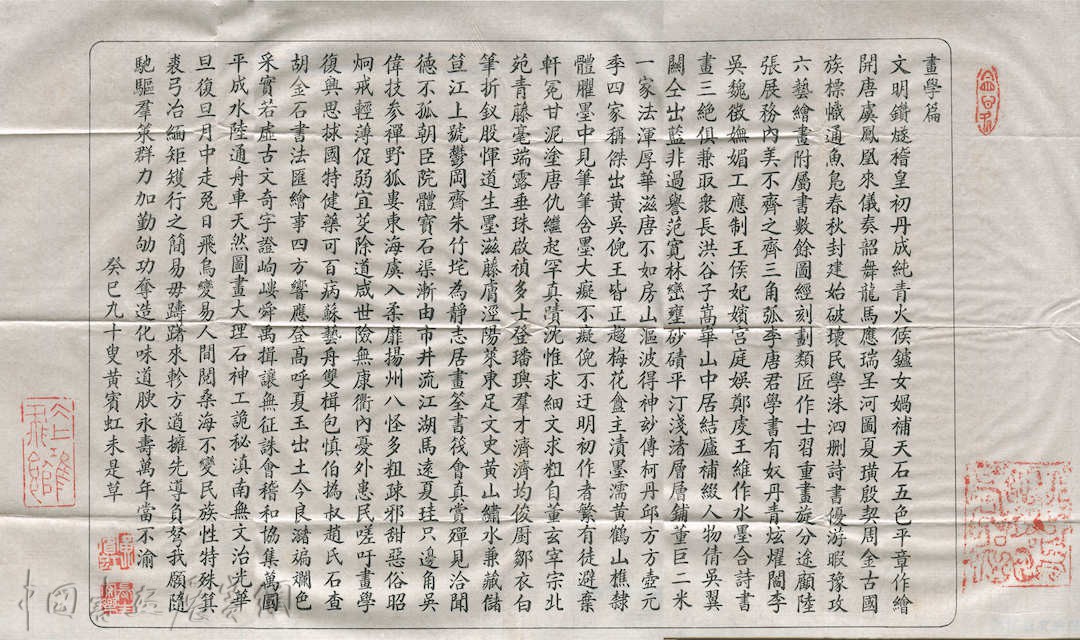 畫學篇
文明鑽燧稽皇初丹成純青火候鑪女媧補天石五色平章作繪
開唐虞鳳凰來儀奏韶舞龍馬應瑞呈河圖夏璜殷契周金古國
族標幟通魚鳧春秋封建始破壞民學洙泗刪詩書優游暇豫攻
六藝繪畫附屬書數餘圖經刻劃類匠作士習重畫旋分途顧陸
張展務內美不齊之齊三角弧李唐君學書有奴丹青炫耀閻李
吳魏徵撫媚工應制王侯妃嬪宮庭娛鄭虔王維作水墨合詩書
畫三絕俱兼取衆長洪谷子嵩華山中居結廬補綴人物倩吳翼
關仝出藍非過譽范寬林巒壅砂磧平汀淺渚層層鋪董巨二米
一家法渾厚華滋唐不如房山漚波得神玅傳柯丹邱方方壺元
季四家稱傑出黃吳倪王皆正趨梅花盦主漬墨濡黃鶴山樵隸
體臞墨中見筆筆含墨大癡不癡倪不迂明初作者繁有徒避棄
軒冕甘泥塗唐仇繼起罕真蹟沈惟求細文求粗自董玄宰宗北
苑青藤毫端露垂珠啟禎多士登璠璵羣才濟濟均俊廚鄒衣白
筆折釵股惲道生墨滋藤膚涇陽萊東足文史黃山繡水兼藏儲
笪江上號鬱岡齊朱竹垞為靜志居畫筌書筏會真賞殫見洽聞
德不孤朝臣院體寶石渠漸由市井流江湖馬逺夏珪只邊角吳
偉技參禪野狐婁東海虞入柔靡揚州八怪多粗疎邪甜惡俗昭
炯戒輕薄促弱宜芟除道咸世險無康衢內憂外患民嗟吁畫學
復興思拯國特健藥可百病蘇藝舟雙楫包慎伯撝叔趙氏石查
胡金石書法匯繪事四方響應登高呼夏玉出土今良渚褊斕色
采實若虛古文奇字證岣嶁舜禹揖讓無征誅會稽和協集萬圓
平成水陸通舟車天然圖畫大理石神工詭秘滇南無文治光華
旦復旦月中走兔日飛烏變易人間閱桑海不變民族性特殊箕
裘弓冶緬矩矱行之簡易毋躊躇來軫方遒擁先導負弩我願隨
馳驅羣策群力加勤劬功奪造化味道腴永壽萬年當不渝
癸巳九十叟黃賓虹未是草